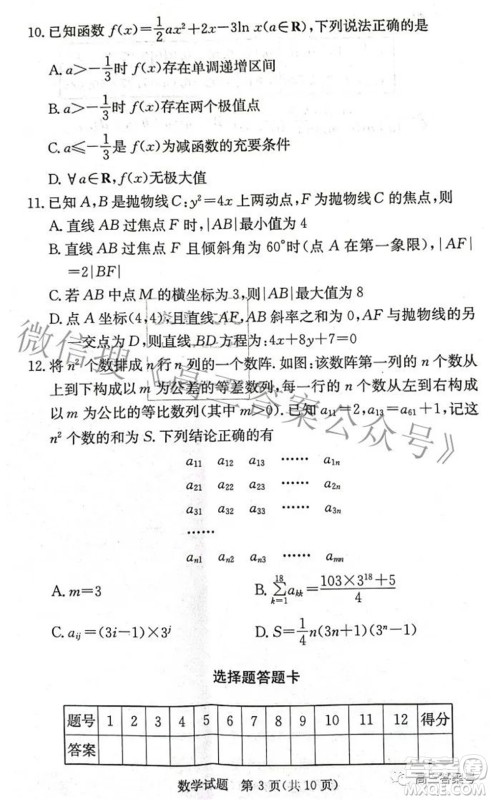 10. 已知函数 f(x)=\frac{1}{2}ax²+2x-3ln x(a∈R),下列说法正确的是
A. a>-\frac{1}{3}时 f(x)存在单调递增区间
B. a>-\frac{1}{3}时 f(x)存在两个极值点
C. a≤-\frac{1}{3}是 f(x)为减函数的充要条件
D. ∀a∈R, f(x)无极大值
11. 已知 A,B 是抛物线 C:y²=4x 上两动点,F 为抛物线 C 的焦点,则
A. 直线 AB 过焦点 F 时,|AB|最小值为 4
B. 直线 AB 过焦点 F 且倾斜角为 60°时(点 A 在第一象限),|AF|
=2|BF|
C. 若 AB 中点 M 的横坐标为 3,则|AB|最大值为 8
D. 点 A 坐标(4,4),且直线 AF,AB 斜率之和为 0,AF 与抛物线的另
一交点为 D,则直线 BD 方程为:4x+8y+7=0
12. 将 n² 个数排成 n 行 n 列的一个数阵.如图:该数阵第一列的 n 个数从
上到下构成以 m 为公差的等差数列,每一行的 n 个数从左到右构成
以 m 为公比的等比数列(其中 m>0).已知 a₁₁=2,a₁₃=a₆₁+1,记这
n² 个数的和为 S.下列结论正确的有
a₁₁ a₁₂ a₁₃ …… a₁ₙ
a₂₁ a₂₂ a₂₃ …… a₂ₙ
a₃₁ a₃₂ a₃₃ …… a₃ₙ
……
aₙ₁ aₙ₂ aₙ₃ …… aₘₙ
A. m=3 B. \sum_{k=1}^{18}a_{kk}=\frac{103×3^{18}+5}{4}
C. a_{ij}=(3i-1)×3^j D. S=\frac{1}{4}n(3n+1)(3ⁿ-1)
选择题答题卡
题号 1 2 3 4 5 6 7 8 9 10 11 12 得分
答案
数学试题 第 3 页(共 10 页)
微信搜《高三答案公众号》
高三答案号